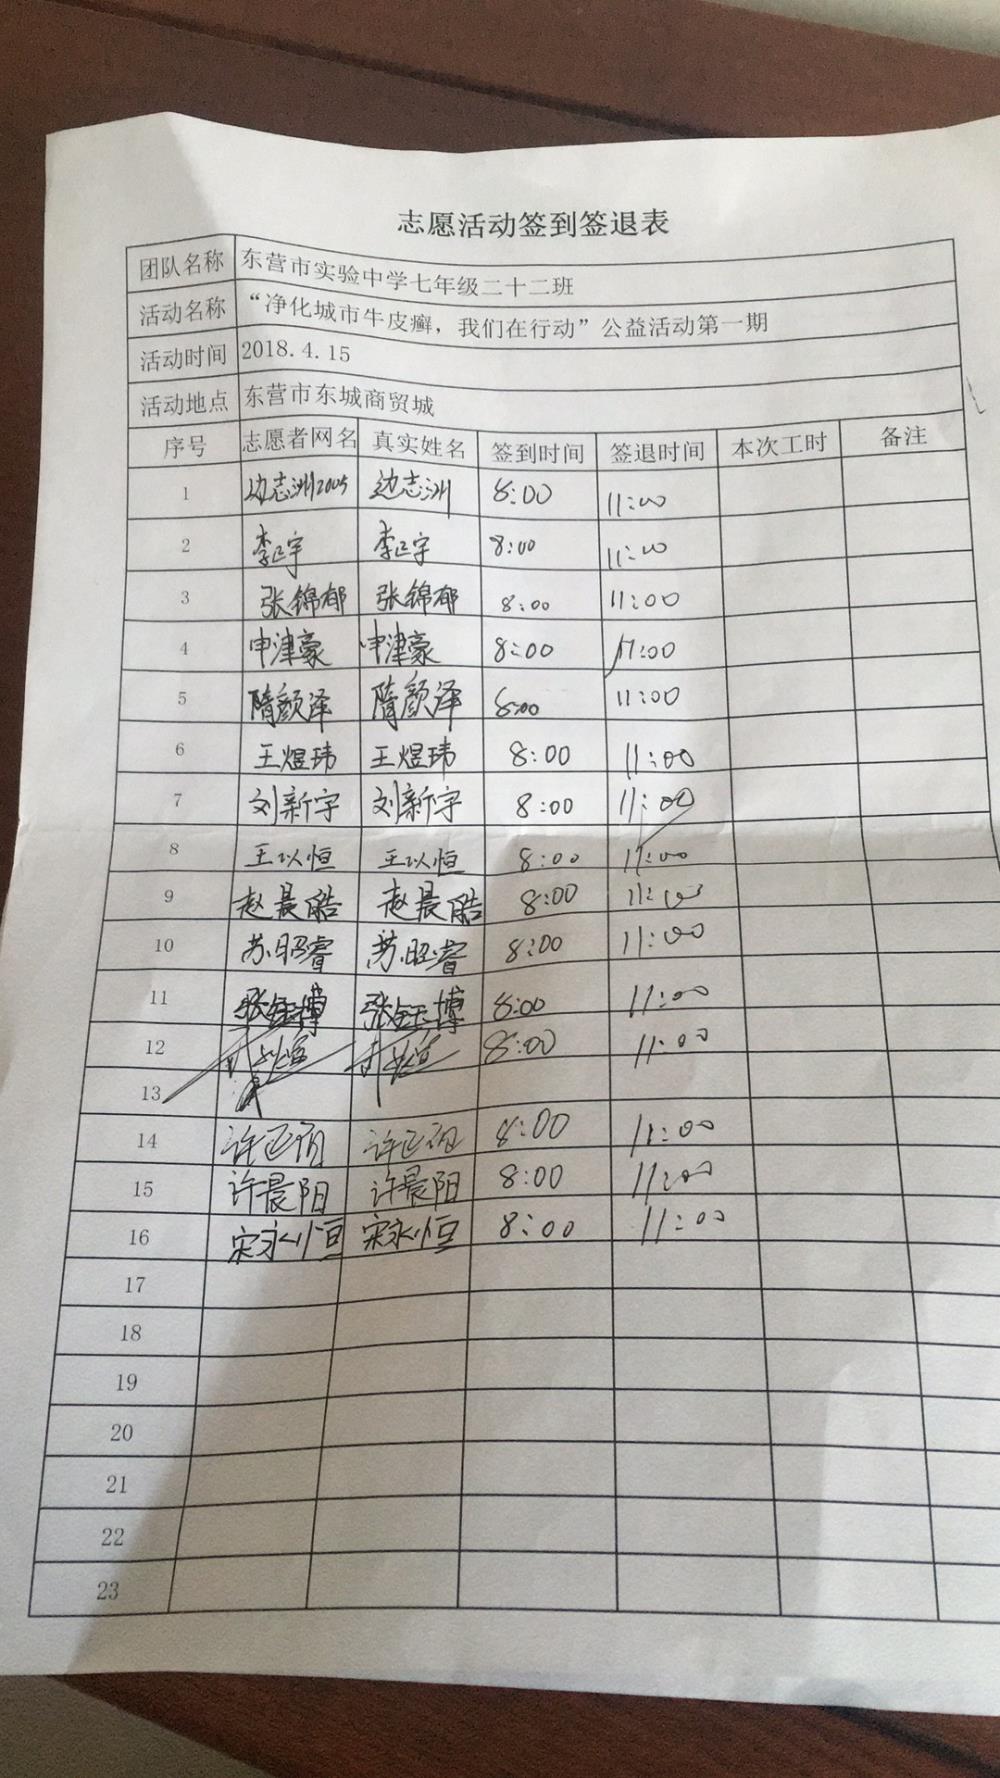 志愿活动签到签退表
团队名称 东营市实验中学七年级二十二班
活动名称 “净化城市牛皮癣，我们在行动”公益活动第一期
活动时间 2018.4.15
活动地点 东营市东城商贸城
序号 志愿者网名 真实姓名 签到时间 签退时间 本次工时 备注
1 边志洲2005 边志洲 8:00 11:00
2 李正宇 李正宇 8:00 11:00
3 张锦郁 张锦郁 8:00 11:00
4 申津豪 申津豪 8:00 11:00
5 隋颜泽 隋颜泽 8:00 11:00
6 王煜玮 王煜玮 8:00 11:00
7 刘新宇 刘新宇 8:00 11:00
8 王以恒 王以恒 8:00 11:00
9 赵晨皓 赵晨皓 8:00 11:00
10 苏昭睿 苏昭睿 8:00 11:00
11 张钰博 张钰博 8:00 11:00
12 8:00 11:00
13
14 8:00 11:00
15 许晨阳 许晨阳 8:00 11:00
16 宋永恒 宋永恒 8:00 11:00
17
18
19
20
21
22
23